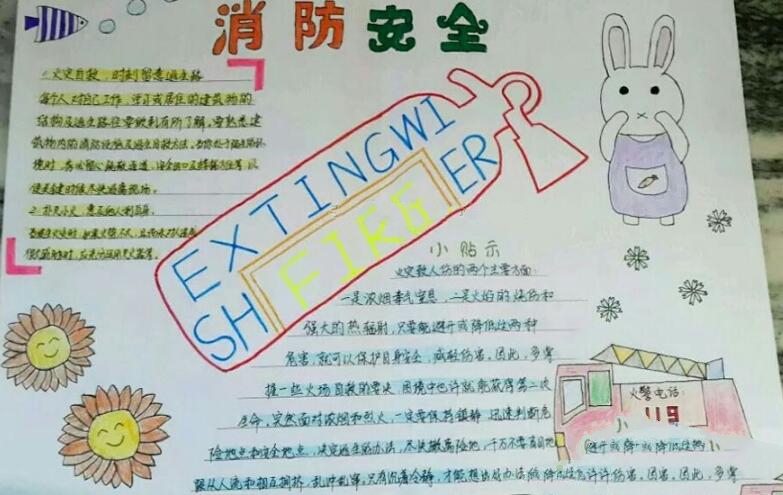 消防安全
1. 火灾自救，时刻留意逃生路
每个人对自己工作、学习或居住的建筑物的
结构及逃生路径要做到有所了解，要熟悉建
筑物内的消防设施及逃生自救方法。
境时，务必留心疏散通道、安全出口
便关键时候尽快逃离现场。
2. 扑灭小火，惠及他人利自身。
EXTINGWI
SH
ER
FIRG
小贴示
火灾致人伤的两个主要方面：
一是浓烟毒气窒息，二是火焰的烧伤和
强大的热辐射，只要能避开或降低这两种
危害，就可以保护自身安全，减轻伤害。因此，多掌
握一些火场自救的要诀，困境中也许就能获得第二次
生命，突然面对浓烟和烈火，一定要保持镇静，迅速判断危
险地点和安全地点，决定逃生的办法，尽快撤离险地，千万不要盲目地
跟从人流和相互拥挤，乱冲乱窜，只有沉着冷静，才能想出好办法
火警电话：
119
避开或降